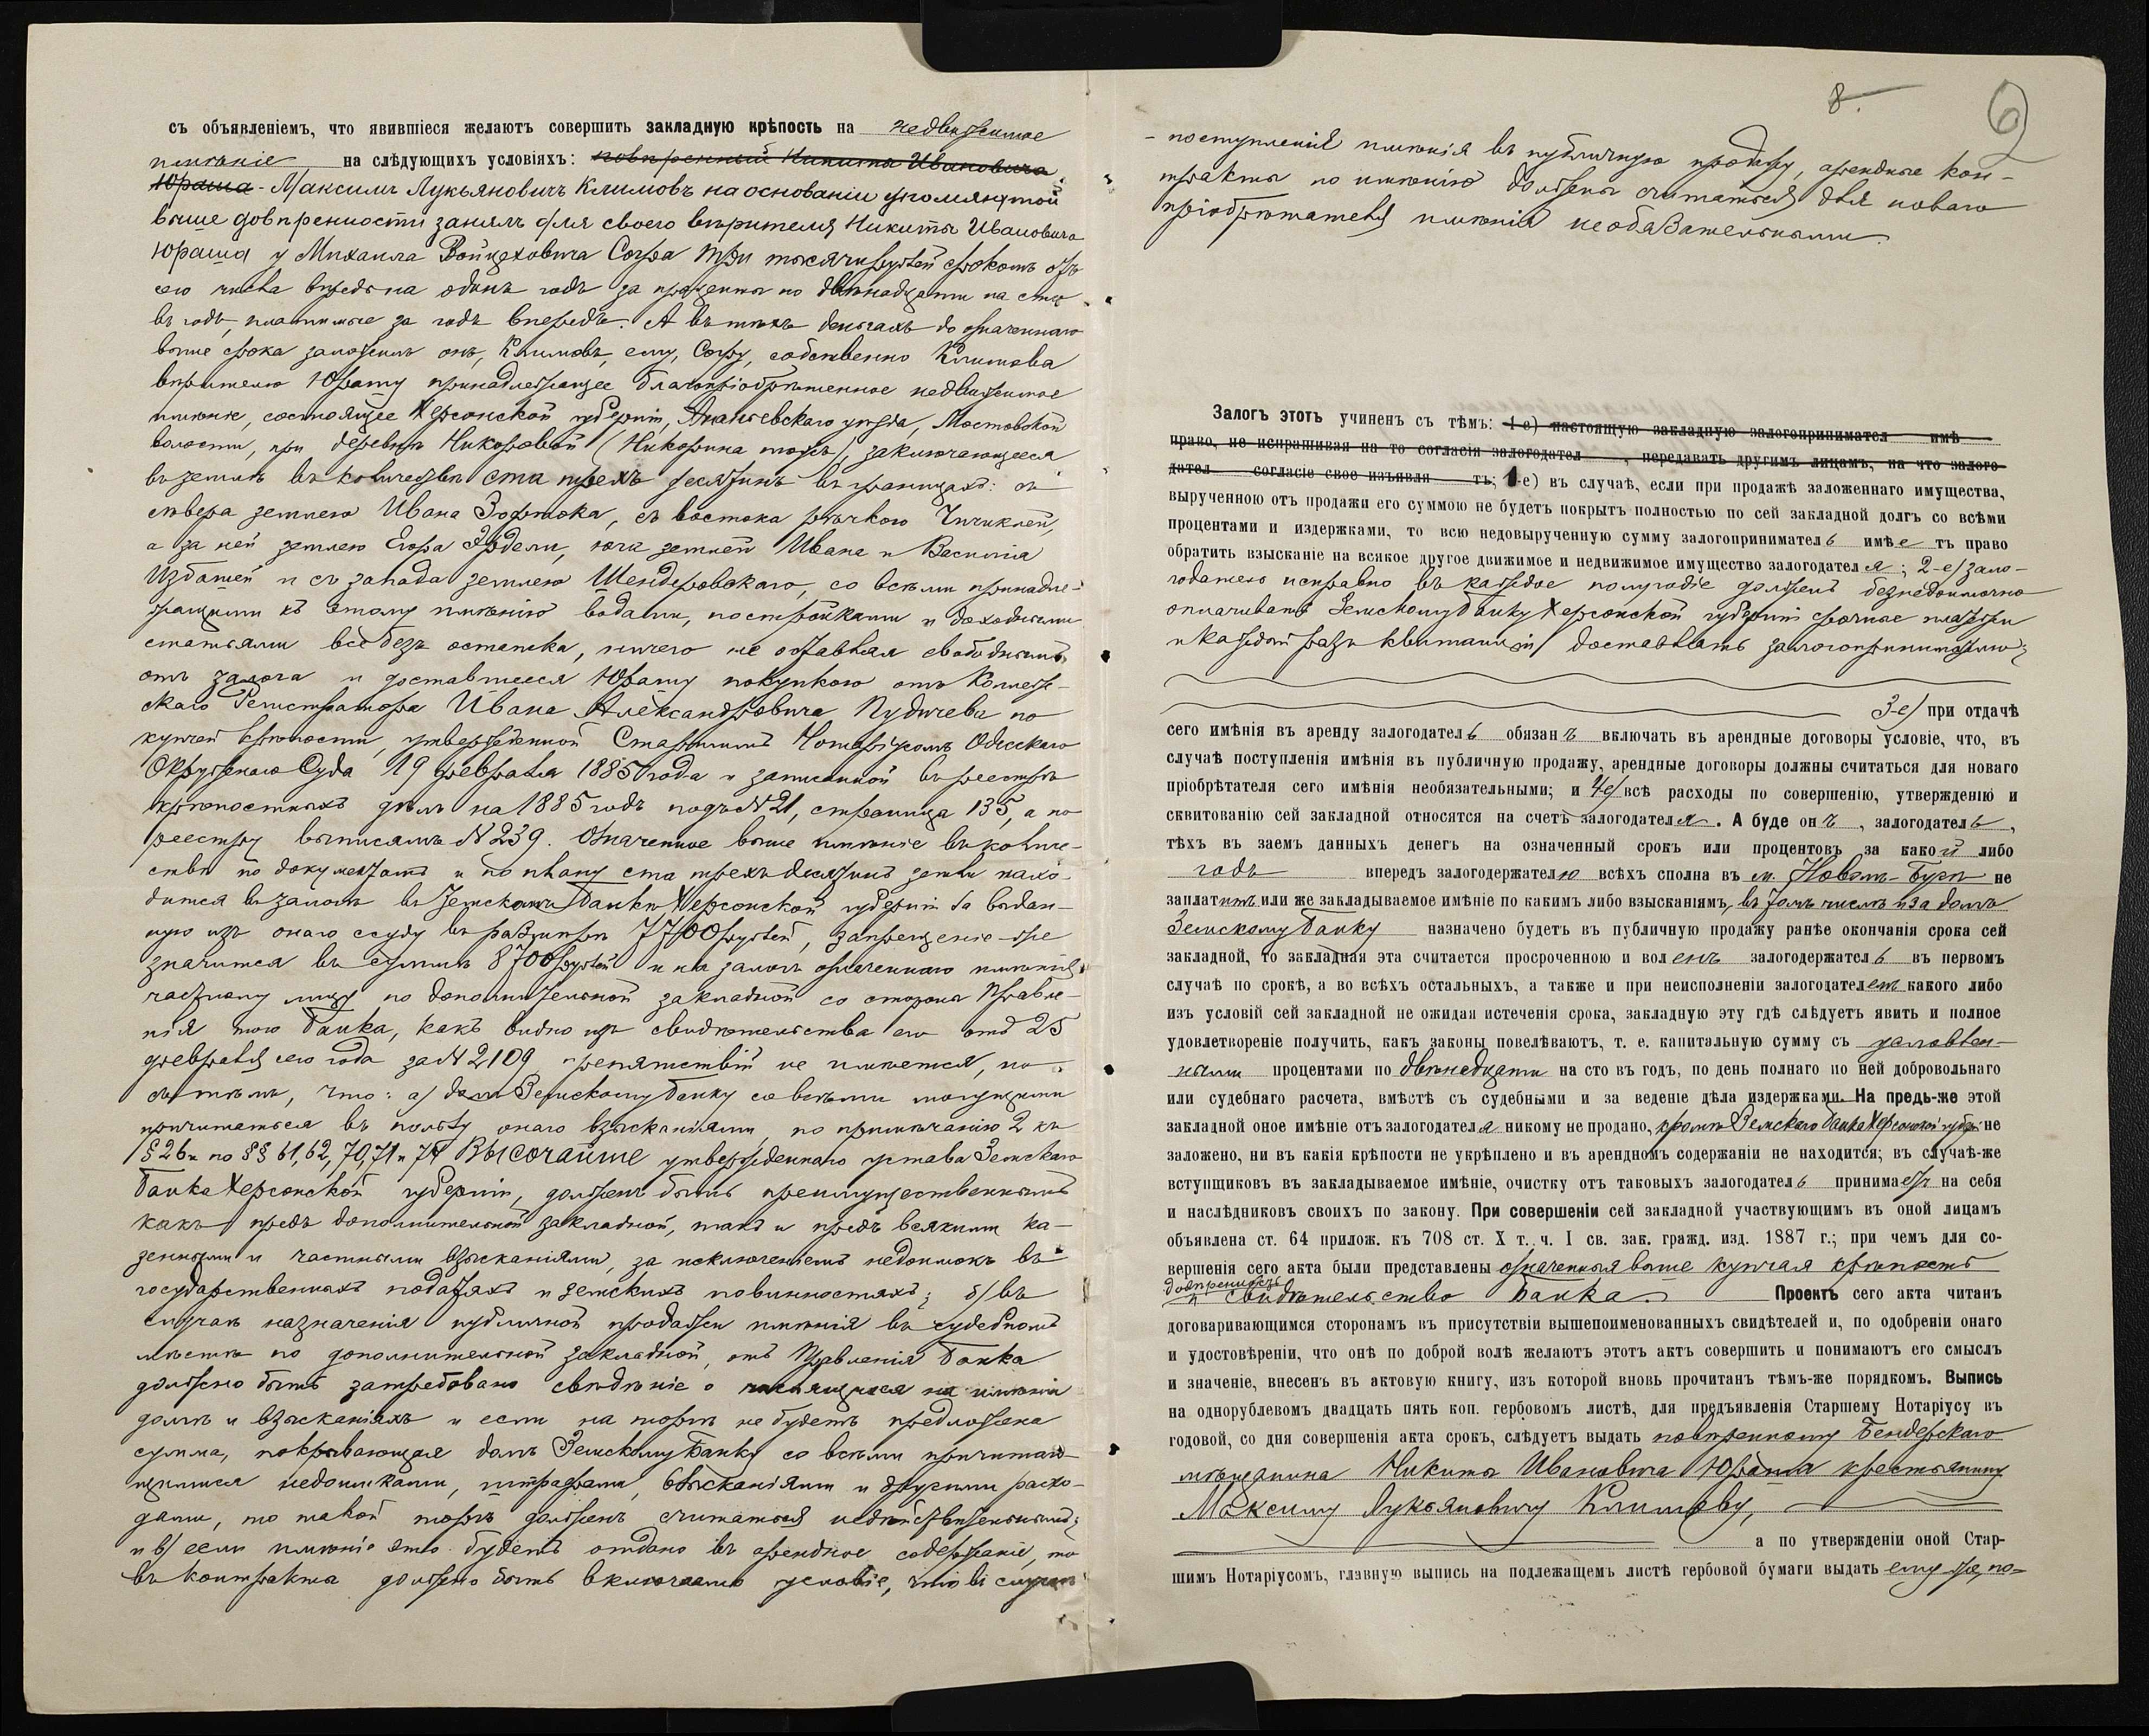 съ объявленіемъ, что явившіеся желаютъ совершить закладную крѣпость на недвижимое
имѣніе на слѣдующихъ условіяхъ: повѣренный Никиты Ивановича
Юраша - Максимъ Лукьяновичъ Климовъ на основаніи упомянутой
выше довѣренности занялъ для своего вѣрителя Никиты Ивановича
Юраша у Михаила Войцеховича Согра три тысячи рублей срокомъ отъ
сего числа впредь на одинъ годъ за проценты по двѣнадцати на сто
въ годъ, платимые за годъ впередъ. А въ тѣхъ деньгахъ до означеннаго
выше срока заложилъ онъ, Климовъ, ему, Согру, собственно Климова
вѣрителю Юрашу принадлежащее благопріобрѣтенное недвижимое
имѣніе, состоящее Херсонской губерніи, Ананьевскаго уѣзда, Мостовской
волости, при деревнѣ Никоровой (Никорина тожъ), заключающееся
въ землѣ въ количествѣ ста трехъ десятинъ въ границахъ: съ
сѣвера землею Ивана, съ востока рѣчкою Чичиклей,
а за ней землею Егора Эрдели, юга землей Ивана и Василія
и съ запада землею Шендеровскаго, со всѣми принадле-
жащими къ этому имѣнію водами, постройками и доходными
статьями всё безъ остатка, ничего не оставляя свободнымъ
отъ залога и доставшееся Юрашу покупкою отъ Коллеж-
скаго Регистратора Ивана Александровича Пудичева по
купчей крѣпости, утвержденной Старшимъ Нотаріусомъ Одесскаго
Окружнаго Суда 19 февраля 1885 года и записанной въ реестрѣ
крѣпостныхъ дѣлъ на 1885 годъ подъ N 21, страница 135, а по
реестру выписямъ N 239. Означенное выше имѣніе въ количе-
ствѣ по документамъ и по плану ста трехъ десятинъ земли нахо-
дится въ залогѣ въ Земскомъ Банкѣ Херсонской губерніи за выдан-
ную изъ онаго ссуду въ размѣрѣ 7700 рублей, запрещеніе же
значится въ суммѣ 8700 рублей и на залогъ означеннаго имѣнія
частному лицу по дополнительной закладной со стороны Правле-
нія того Банка, какъ видно изъ свидѣтельства его отъ 25
февраля сего года за N 2109 препятствій не имѣется, но
съ тѣмъ, что: а) долгъ Земскому Банку со всѣми могущими
причитаться въ пользу онаго взысканіями, по примѣчанію 2 къ
§ 26 и по §§ 61, 62, 70, 71 и 74 ВЫСОЧАЙШЕ утвержденнаго устава Земскаго
Банка Херсонской губерніи, долженъ быть преимущественнымъ
какъ предъ дополнительной закладной, такъ и предъ всякими ка-
зенными и частными взысканіями, за исключеніемъ недоимокъ въ
государственныхъ податяхъ и земскихъ повинностяхъ; б) въ
случаѣ назначенія публичной продажи имѣнія въ судебномъ
мѣстѣ по дополнительной закладной, отъ Правленія Банка
должно быть затребовано свѣдѣніе о числящемся на имѣніи
долгѣ и взысканіяхъ и если на торгѣ не будетъ предложена
сумма, покрывающая долгъ Земскому Банку со всѣми причитаю-
щимися недоимками, штрафами, взысканіями и другими расхо-
дами, то такой торгъ долженъ считаться недѣйствительнымъ;
и в) если имѣніе это будетъ отдано въ арендное содержаніе, то
въ контракты должно быть включаемо условіе, что въ случаѣ
8.
6
- поступленія имѣнія въ публичную продажу, арендные кон-
тракты по имѣнію должны считаться для новаго
пріобрѣтателя имѣнія необязательными.
Залогъ этотъ учиненъ съ тѣмъ: 1-е) настоящую закладную залогопринимател имѣ
право, не испрашивая на то согласія залогодател , передавать другимъ лицамъ, на что залого-
дател согласіе свое изъявля тъ; 1-е) въ случаѣ, если при продажѣ заложеннаго имущества,
вырученною отъ продажи его суммою не будетъ покрытъ полностью по сей закладной долгъ со всѣми
процентами и издержками, то всю недовырученную сумму залогопринимателъ имѣетъ право
обратить взысканіе на всякое другое движимое и недвижимое имущество залогодателя; 2-е) зало-
годатель исправно въ каждое полугодіе долженъ безнедоимочно
оплачивать Земскому Банку Херсонской губерніи срочные платежи
и каждый разъ квитанціи доставлять залогопринимателю;
3-е) при отдачѣ
сего имѣнія въ аренду залогодатель обязанъ включать въ арендные договоры условіе, что, въ
случаѣ поступленія имѣнія въ публичную продажу, арендные договоры должны считаться для новаго
пріобрѣтателя сего имѣнія необязательными; и 4-е) всѣ расходы по совершенію, утвержденію и
сквитованію сей закладной относятся на счетъ залогодателя. А буде онъ , залогодатель ,
тѣхъ въ заемъ данныхъ денегъ на означенный срокъ или процентовъ за какой либо
годъ впередъ залогодержателю всѣхъ сполна въ м. Новомъ-Бугѣ не
заплатитъ или же закладываемое имѣніе по какимъ либо взысканіямъ, въ томъ числѣ и за долгъ
Земскому Банку назначено будетъ въ публичную продажу ранѣе окончанія срока сей
закладной, то закладная эта считается просроченною и воленъ залогодержатель въ первомъ
случаѣ по срокѣ, а во всѣхъ остальныхъ, а также и при неисполненіи залогодателемъ какого либо
изъ условій сей закладной не ожидая истеченія срока, закладную эту гдѣ слѣдуетъ явить и полное
удовлетвореніе получить, какъ законы повелѣваютъ, т. е. капитальную сумму съ условлен-
ными процентами по двѣнадцати на сто въ годъ, по день полнаго по ней добровольнаго
или судебнаго расчета, вмѣстѣ съ судебными и за веденіе дѣла издержками. На предь-же этой
закладной оное имѣніе отъ залогодателя никому не продано, кромѣ Земскаго Банка Херсонской губ. не
заложено, ни въ какія крѣпости не укрѣплено и въ арендномъ содержаніи не находится; въ случаѣ-же
вступщиковъ въ закладываемое имѣніе, очистку отъ таковыхъ залогодатель принимаетъ на себя
и наслѣдниковъ своихъ по закону. При совершеніи сей закладной участвующимъ въ оной лицамъ
объявлена ст. 64 прилож. къ 708 ст. X т. ч. I св. зак. гражд. изд. 1887 г.; при чемъ для со-
вершенія сего акта были представлены означенныя выше купчая крѣпость
довѣренность
и свидѣтельство Банка. Проектъ сего акта читанъ
договаривающимся сторонамъ въ присутствіи вышепоименованныхъ свидѣтелей и, по одобреніи онаго
и удостовѣреніи, что онѣ по доброй волѣ желаютъ этотъ актъ совершить и понимаютъ его смыслъ
и значеніе, внесенъ въ актовую книгу, изъ которой вновь прочитанъ тѣмъ-же порядкомъ. Выпись
на однорублевомъ двадцать пять коп. гербовомъ листѣ, для предъявленія Старшему Нотаріусу въ
годовой, со дня совершенія акта срокъ, слѣдуетъ выдать повѣренному Бендерскаго
мѣщанина Никиты Ивановича Юраша крестьянину
Максиму Лукьяновичу Климову,
а по утвержденіи оной Стар-
шимъ Нотаріусомъ, главную выпись на подлежащемъ листѣ гербовой бумаги выдать ему же, по-